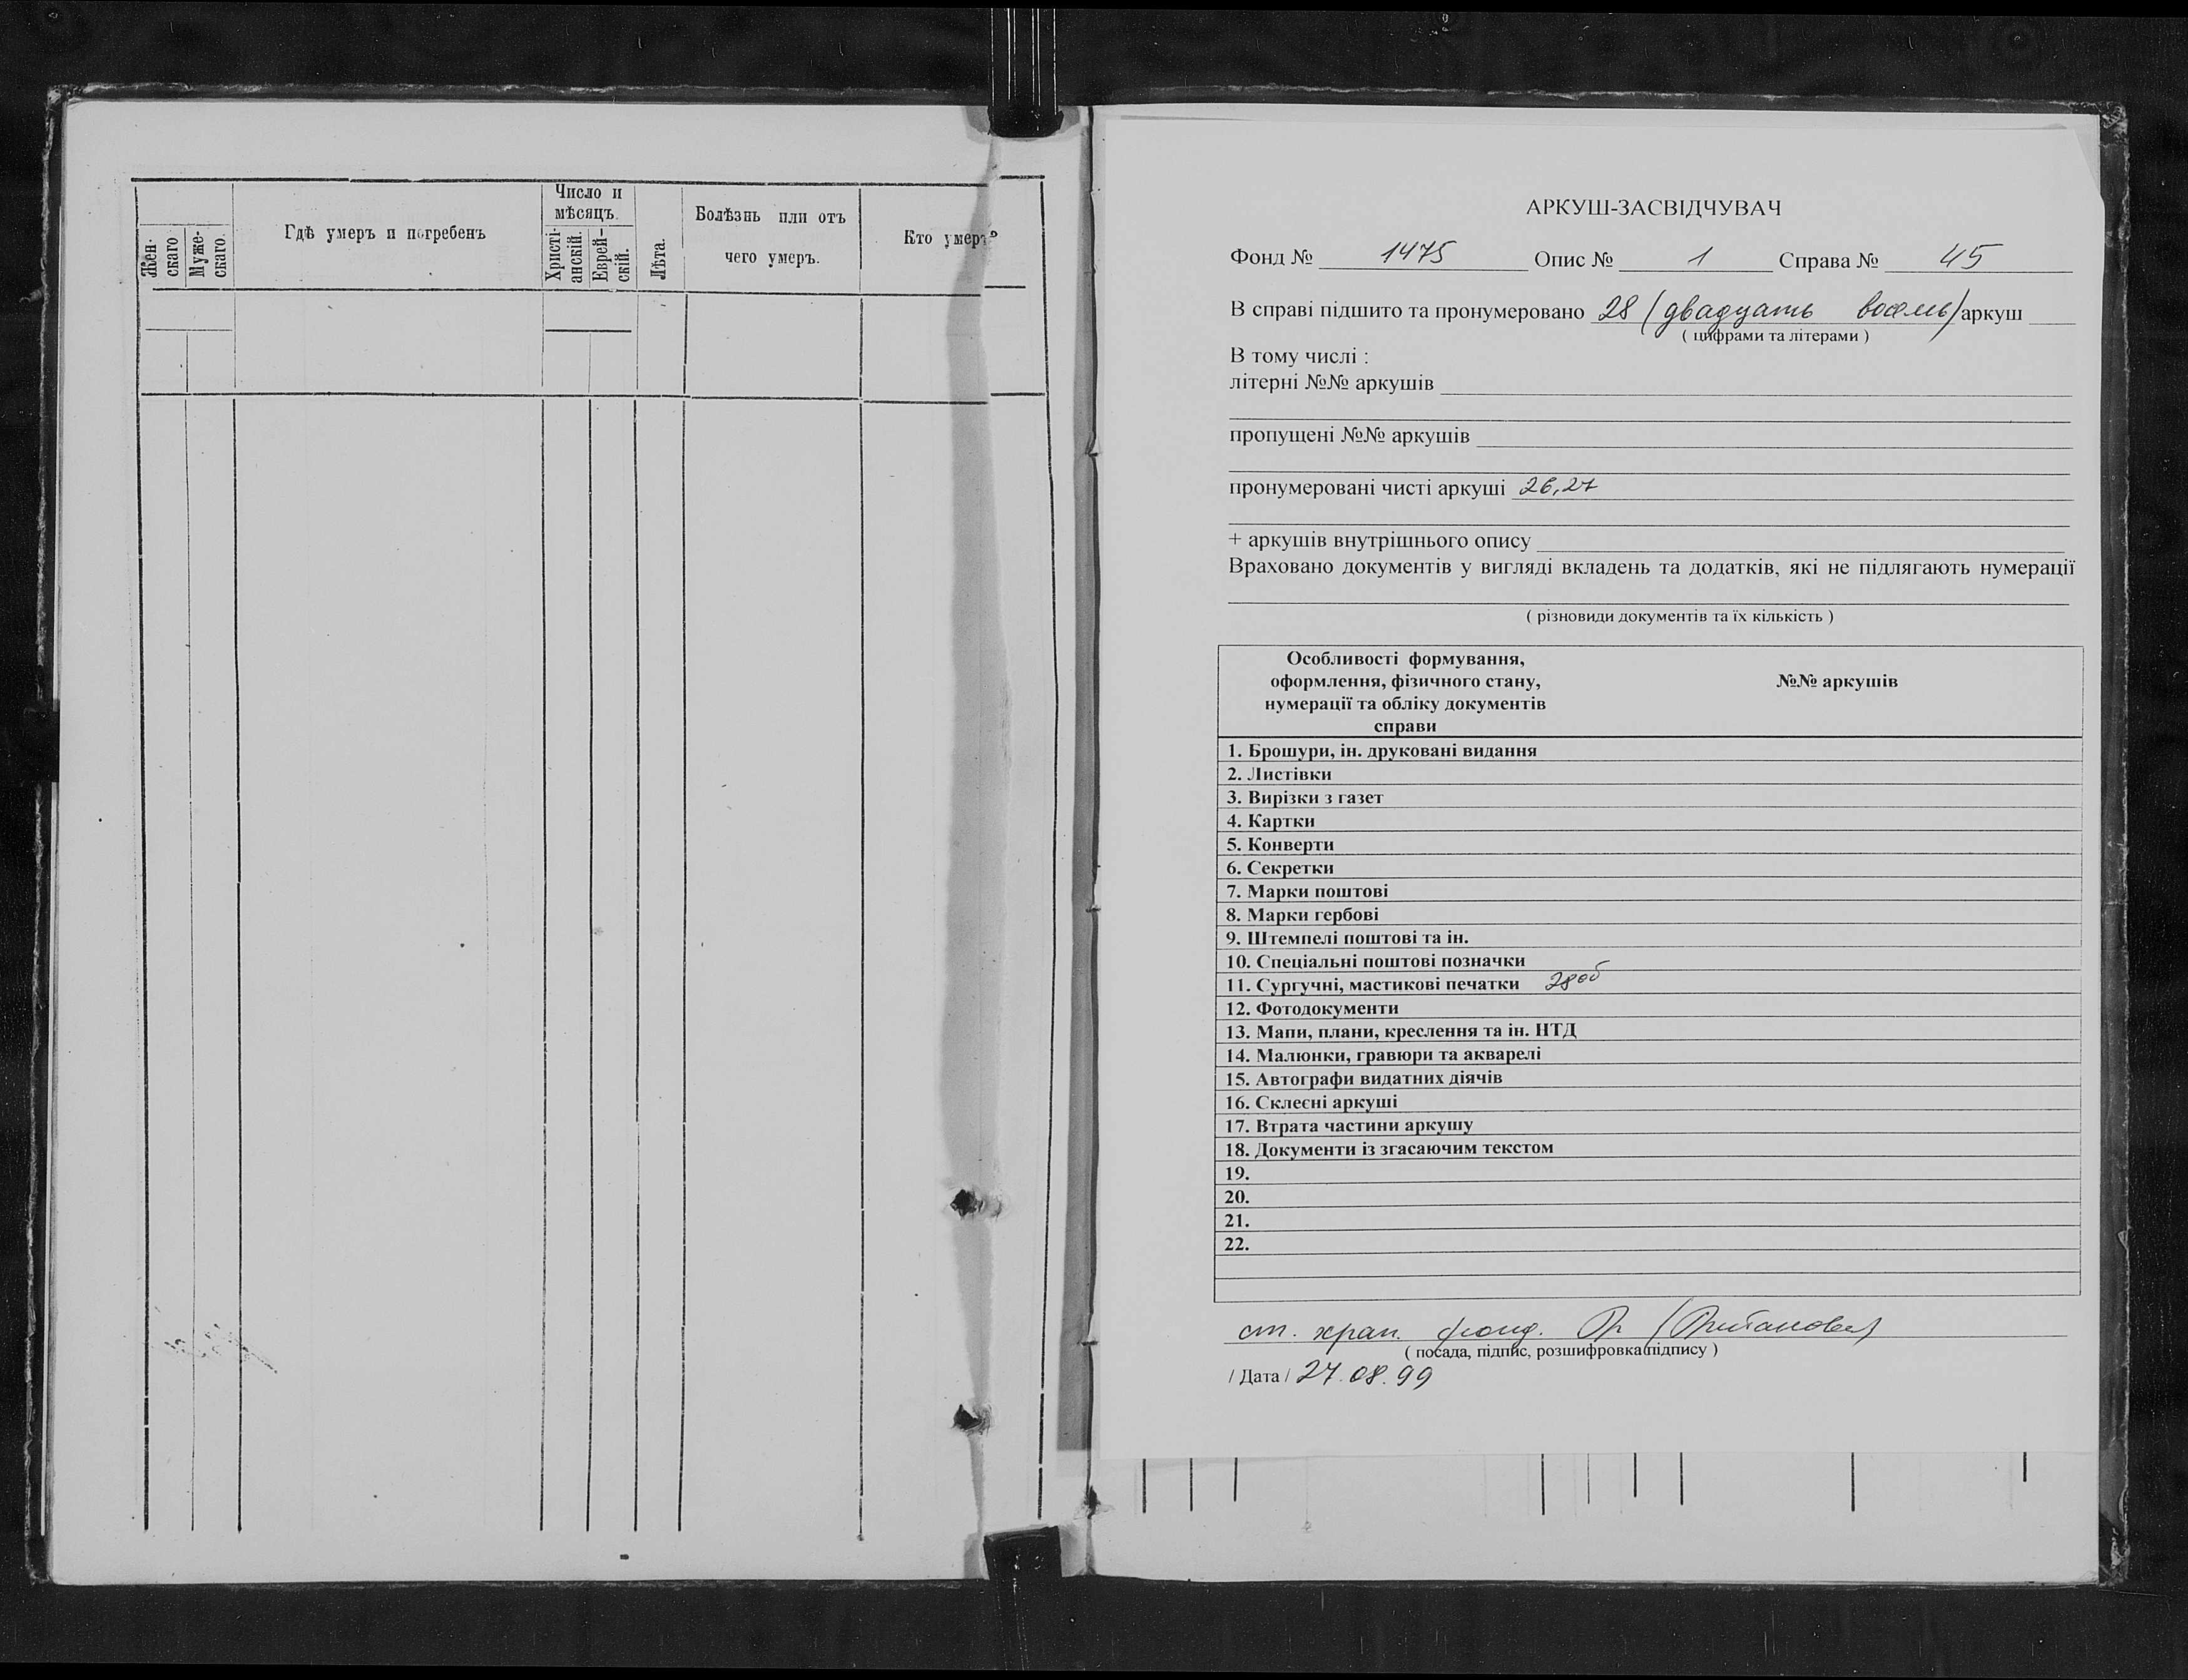 Жен-
скаго
Муже-
скаго.
Гдѣ умеръ и погребенъ
Число и
мѣсяцъ.
Христі-
анскій.
Еврей-
скій.
Лѣта.
Болѣзнь или отъ
чего умеръ.
Кто умеръ
АРКУШ-ЗАСВІДЧУВАЧ
Фонд № 1475 Опис № 1 Справа № 45
В справі підшито та пронумеровано 28 (двадцать восемь) аркуш
( цифрами та літерами )
В тому числі :
літерні №№ аркушів
пропущені №№ аркушів
пронумеровані чисті аркуші 26,27
+ аркушів внутрішнього опису
Враховано документів у вигляді вкладень та додатків, які не підлягають нумерації
( різновиди документів та їх кількість )
Особливості формування,
оформлення, фізичного стану,
нумерації та обліку документів
справи
№№ аркушів
1. Брошури, ін. друковані видання
2. Листівки
3. Вирізки з газет
4. Картки
5. Конверти
6. Секретки
7. Марки поштові
8. Марки гербові
9. Штемпелі поштові та ін.
10. Спеціальні поштові позначки
11. Сургучні, мастикові печатки 28об
12. Фотодокументи
13. Мапи, плани, креслення та ін. НТД
14. Малюнки, гравюри та акварелі
15. Автографи видатних діячів
16. Склеєні аркуші
17. Втрата частини аркушу
18. Документи із згасаючим текстом
19.
20.
21.
22.
ст. хран. фонд.
( посада, підпис, розшифровка підпису )
/ Дата / 27.08.99